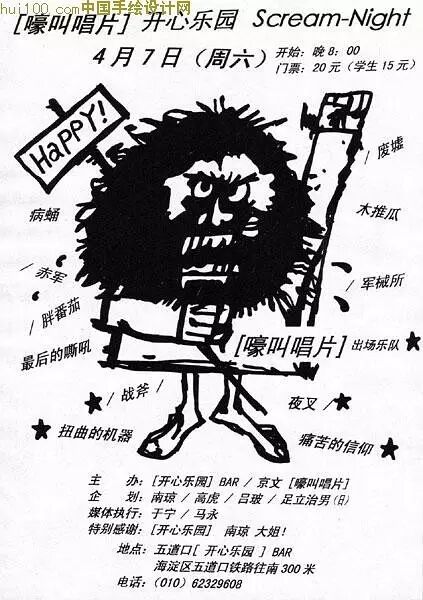 hui100.com中国手绘设计网
[嚎叫唱片] 开心乐园 Scream-Night
4月7日（周六）
开始：晚8：00
门票：20元（学生15元）
HaPPY!
/ 废墟
病蛹
木推瓜
/ 赤军
/ 军械所
/ 胖番茄
[嚎叫唱片] 出场乐队 ★
最后的嘶吼
★ / 战斧 /
夜叉 / ★
★ 扭曲的机器
痛苦的信仰 ★
主 办：[开心乐园] BAR / 京文 [嚎叫唱片]
企 划：南琼 / 高虎 / 吕玻 / 足立治男(日)
媒体执行：于宁 / 马永
特别感谢：[开心乐园] 南琼 大姐！
地点：五道口[ 开心乐园 ] BAR
海淀区五道口铁路往南300米
电话：(010) 62329608